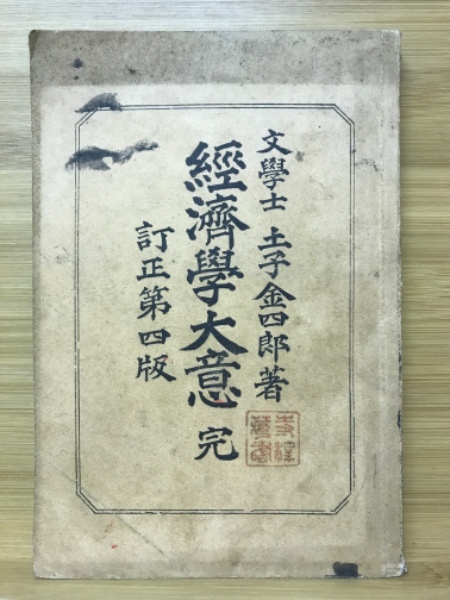 文學士 土子金四郎著
經濟學大意 完
訂正第四版